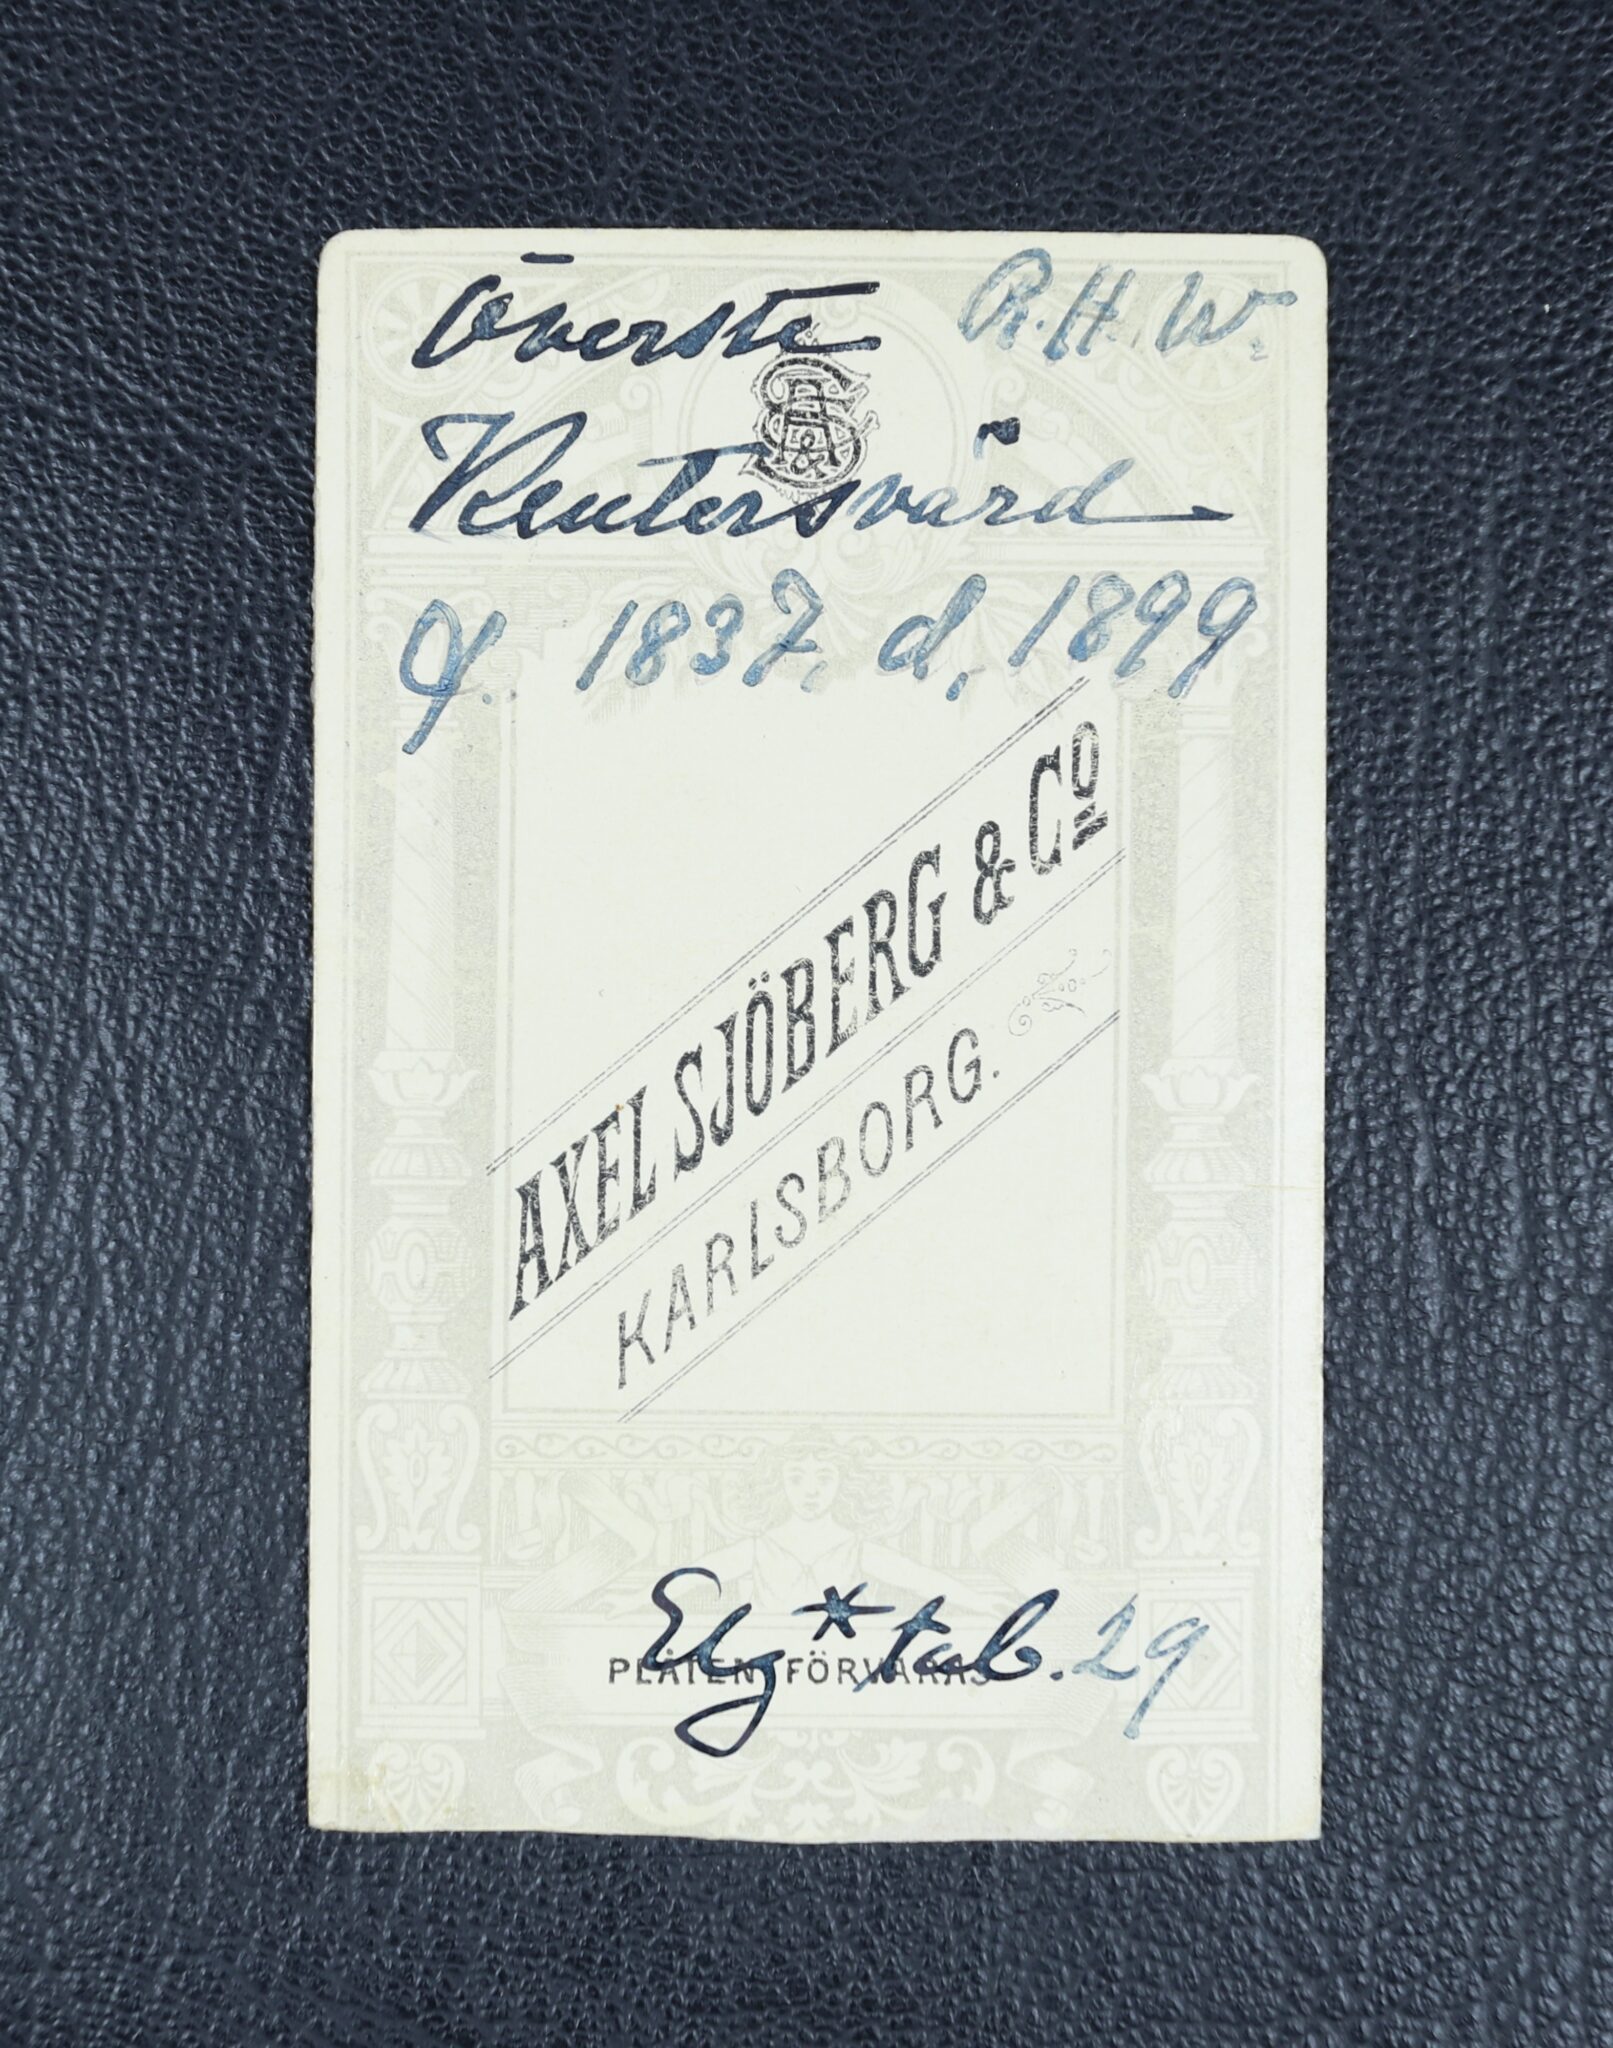 Överste R. H. W.
A&S
Reutersvärd
f. 1837, d, 1899
AXEL SJÖBERG & Co
KARLSBORG.
Elg* tab. 29
PLÅTEN FÖRVARAS